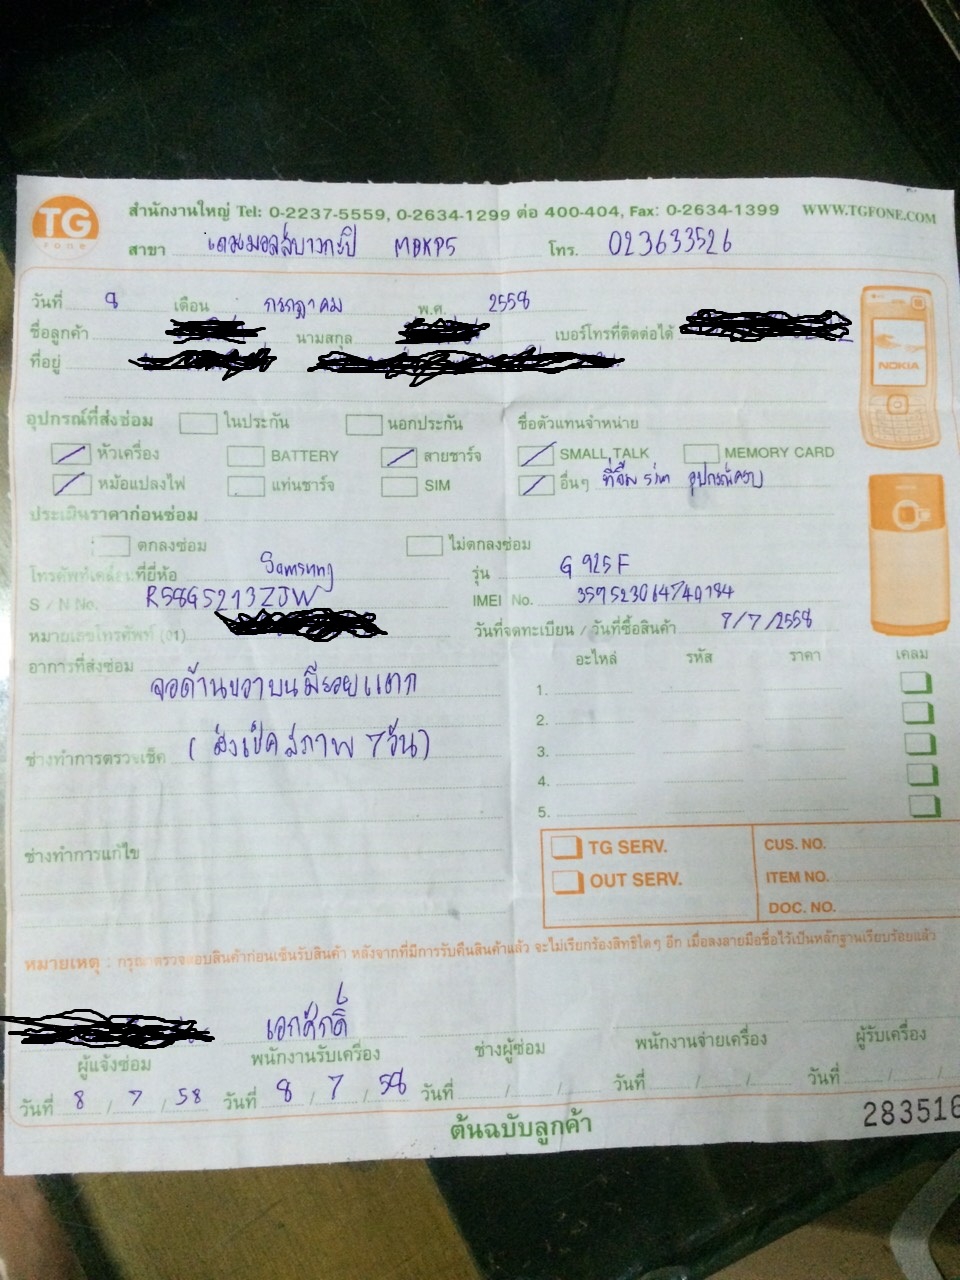 TG
fone
สำนักงานใหญ่ Tel: 0-2237-5559, 0-2634-1299 ต่อ 400-404, Fax: 0-2634-1399 WWW.TGFONE.COM
สาขา เดอะมอลล์บางกะปิ MBKP5 โทร. 023633526
วันที่ 8 เดือน กรกฎาคม พ.ศ. 2558
ชื่อลูกค้า นามสกุล เบอร์โทรที่ติดต่อได้
ที่อยู่
NOKIA
อุปกรณ์ที่ส่งซ่อม ในประกัน นอกประกัน ชื่อตัวแทนจำหน่าย
หัวเครื่อง BATTERY สายชาร์จ SMALL TALK MEMORY CARD
หม้อแปลงไฟ แท่นชาร์จ SIM อื่นๆ ที่จิ้ม sim อุปกรณ์ครบ
ประเมินราคาก่อนซ่อม
ตกลงซ่อม ไม่ตกลงซ่อม
โทรศัพท์เคลื่อนที่ยี่ห้อ Samsung รุ่น G 925F
S / N No. R58G5213ZJW IMEI No. 357523064740184
หมายเลขโทรศัพท์ (01) วันที่จดทะเบียน / วันที่ซื้อสินค้า 7/7/2558
อาการที่ส่งซ่อม อะไหล่ รหัส ราคา เคลม
จอด้านขวาบนมีรอยแตก 1.
2.
ช่างทำการตรวจเช็ค (ส่งเช็คสภาพ 7 วัน) 3.
4.
5.
ช่างทำการแก้ไข TG SERV. CUS. NO.
OUT SERV. ITEM NO.
DOC. NO.
หมายเหตุ : กรุณาตรวจสอบสินค้าก่อนเซ็นรับสินค้า หลังจากที่มีการรับคืนสินค้าแล้ว จะไม่เรียกร้องสิทธิใดๆ อีก เมื่อลงลายมือชื่อไว้เป็นหลักฐานเรียบร้อยแล้ว
เอกศักดิ์
ผู้แจ้งซ่อม พนักงานรับเครื่อง ช่างผู้ซ่อม พนักงานจ่ายเครื่อง ผู้รับเครื่อง
วันที่ 8 / 7 / 58 วันที่ 8 / 7 / 58 วันที่ / / วันที่ / / วันที่ / /
ต้นฉบับลูกค้า 283516